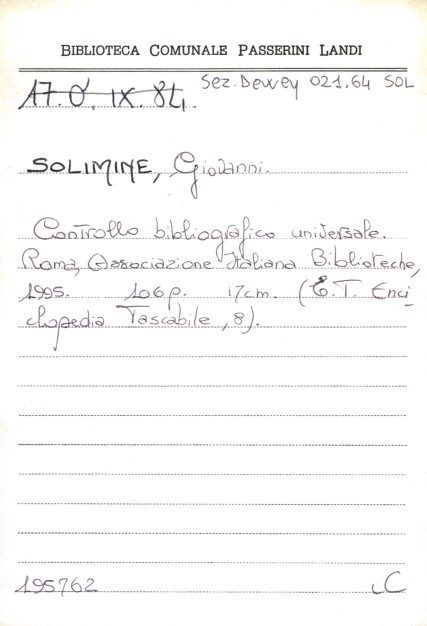 BIBLIOTECA COMUNALE PASSERINI LANDI
17.O.IX.84.
Sez. Dewey 021.64 SOL
SOLIMINE, Giovanni.
Controllo bibliografico universale.
Roma, Associazione Italiana Biblioteche,
1995. 106 p. 17 cm. (E.T. Enci
clopedia Tascabile, 8).
195762 C